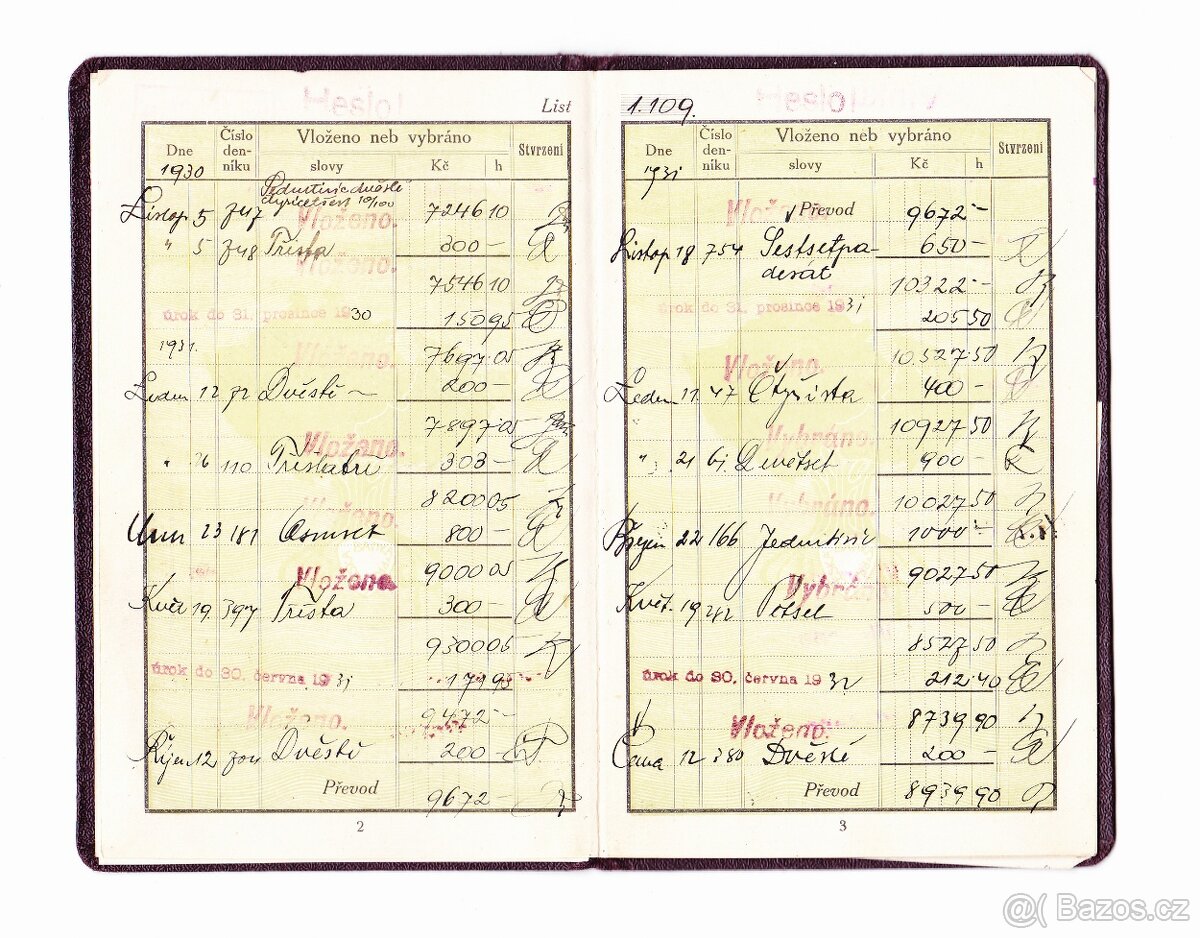 List
Dne
Číslo
den-
níku
Vloženo neb vybráno
slovy
Kč
h
Stvrzení
1930
Sedmtisícdvěstě
Vloženo.
Listop 5 747 7246 10
" 5 748 Třista 300 —
Vloženo.
7546 10
úrok do 31. prosince 1930 150 95
1931.
Vloženo.
7697.05
Leden 12 72 Dvěstě 200 —
7897.05
Vloženo.
" 26 110 Třistatři 303 —
8200 05
Vloženo.
Únor 23 181 Osmset 800 —
9000 05
Vloženo.
Květ 19. 397 Třista 300 —
9300 05
úrok do 30. června 1931 171 95
9472 —
Vloženo.
Říjen 12 704 Dvěstě 200 —
Převod
9672 —
2
1.109.
Dne
Číslo
den-
níku
Vloženo neb vybráno
slovy
Kč
h
Stvrzení
1931
Vloženo.
Převod 9672 —
Listop 18 754 Šestsetpa-
desát
650 —
10322 —
úrok do 31. prosince 1931 205 50
10.527.50
Vloženo.
Leden 11 47 Čtyřista 400 —
10927 50
Vybráno.
" 21 61 Devětset 900 —
10027 50
Vybráno.
Březen 22 166 Jedentisíc 1000 —
9027 50
Vybráno
Květ. 19 282 Pětset 500 —
8527 50
úrok do 30. června 1932 212.40
8739 90
Vloženo.
12 380 Dvěstě 200 —
Převod 8939 90
3
@( Bazos.cz